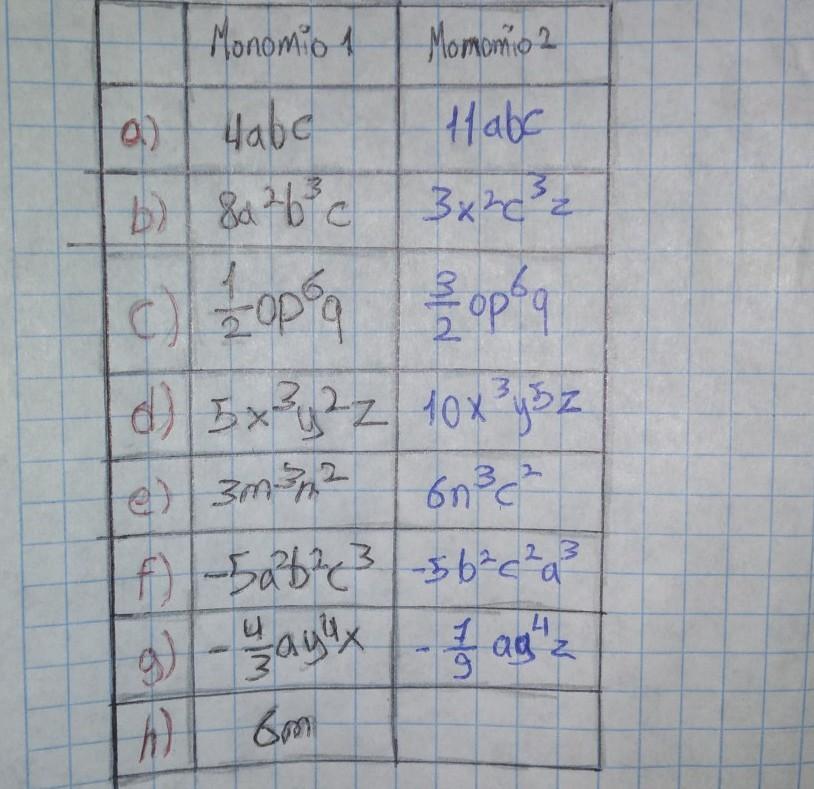 Monomio 1 Momomio 2
a) 4abc 11abc
b) 8a²b³c 3x²c³z
c) 1/2 op⁶q 3/2 op⁶q
d) 5x³y²z 10x³y⁵z
e) 3m³n² 6n³c²
f) -5a²b²c³ -5b²c²a³
g) -4/3 ay⁴x -7/9 ay⁴z
h) 6m